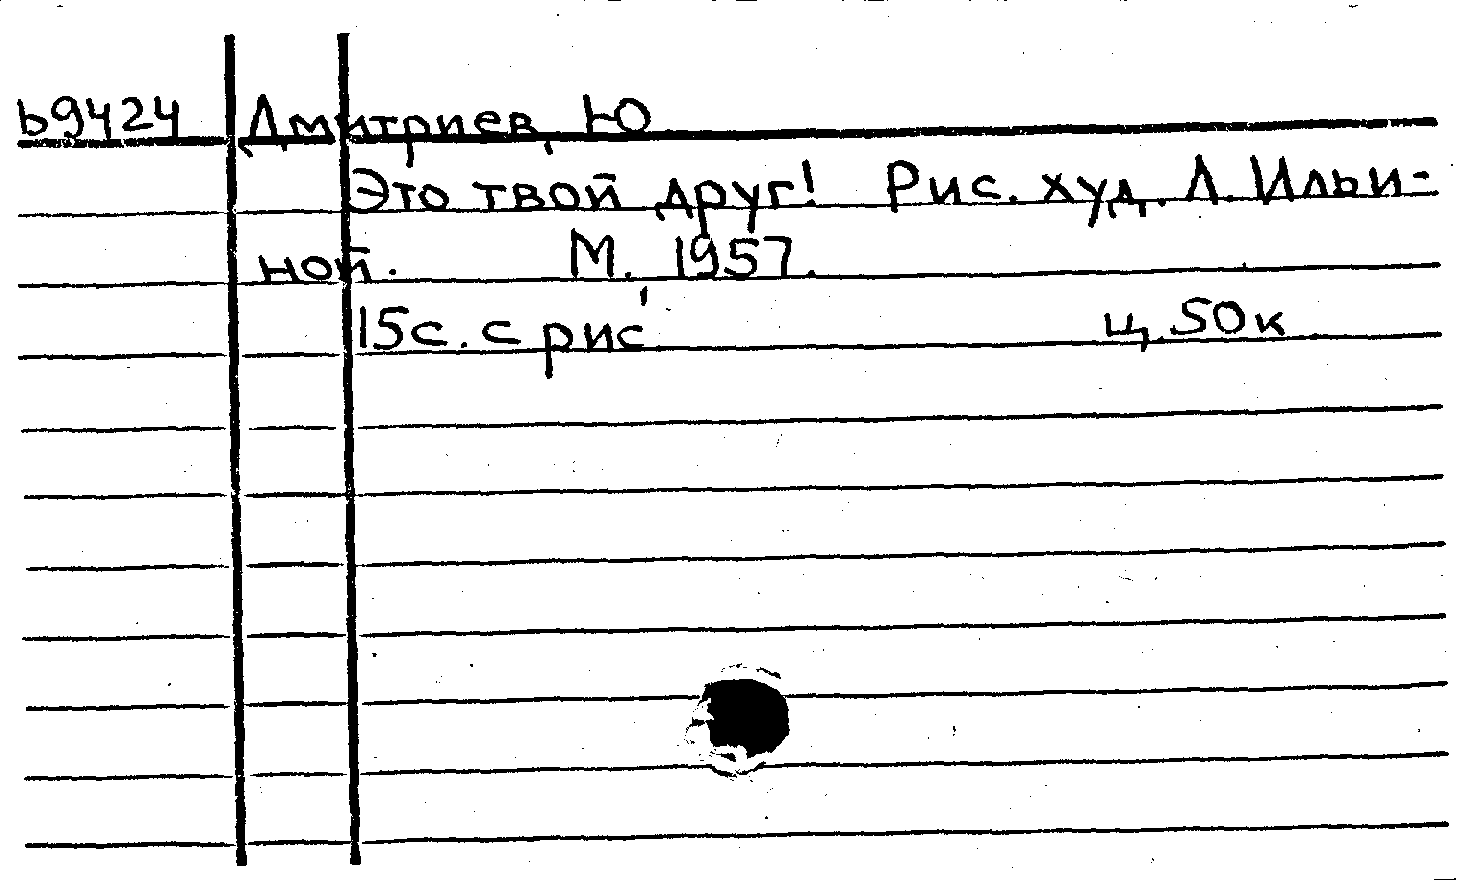 ь9424 Дмитриев, Ю
Это твой друг! Рис. худ. Л. Ильи-
ной. М. 1957.
15с. с рис. ц. 50к